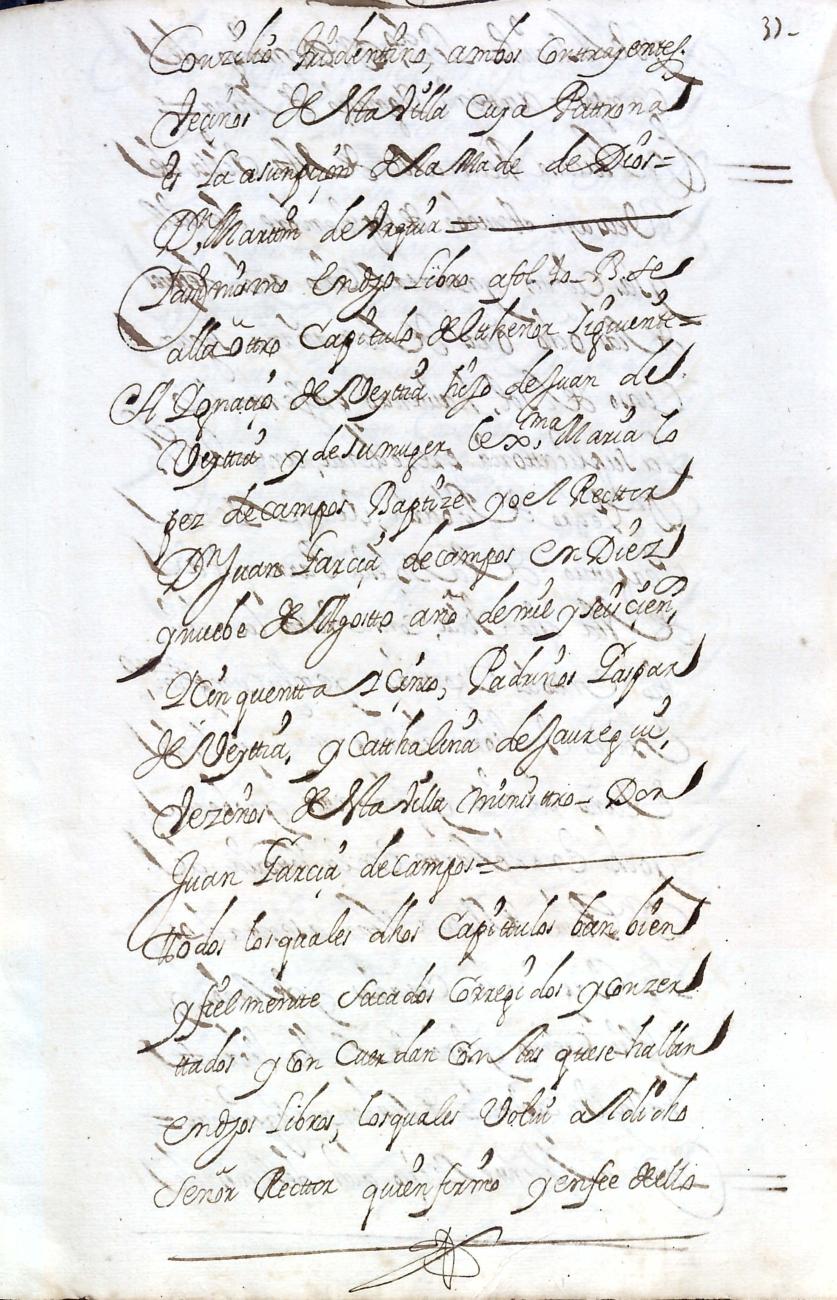 33-
Conzilio tridentino, ambos Contrayentes
Veçinos de esta Villa Cuya Patrona
es La asumpçion de la Made de Dios=
Dn. Martin de =
Yassimismo En dho Libro a fol. 40 B. se
alla ottro Capitulo del thenor siguiente=
A Ygnaçio de Veyttia hijo de Juan de
Veyttia y de su muger lexma. Maria Lo
pez de campos Baptize yo el Recttor
Dn Juan Garcia de campos en Diez
y nuebe de Agostto año de mil y seisçien,
YCinquentta YCinco, Padrinos Gaspar
de Veyttia, y Catthalina de Jauregui,
Vezinos de esta Villa ministtro- Don
Juan Garçia de Campos=
ttodos los quales dhos Capittulos ban bien
y fielmentte sacados Corregidos y Conzer
ttados y Con Cuerdan Con los que se hallan
en dhos Libros, los quales Volui al dicho
Señor Recttor quien firmo y en fee de ello